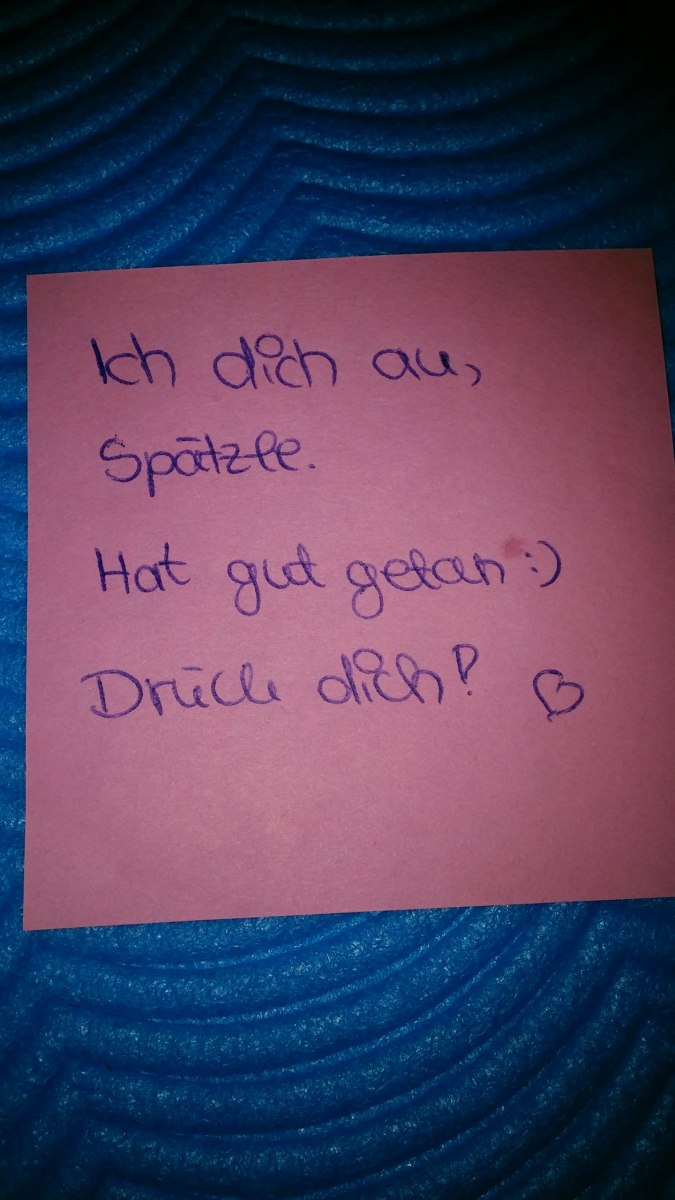 Ich dich au,
Spätzle.
Hat gut getan :)
Drück dich! ♡